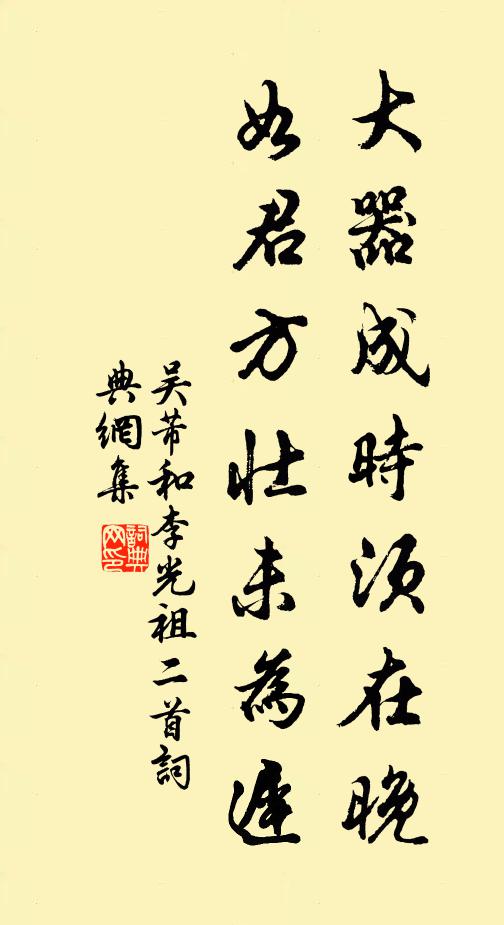 大器成時須在晚
如君方壯未為遲
吳芾和李光祖二首詞
典網集
詞典
网印